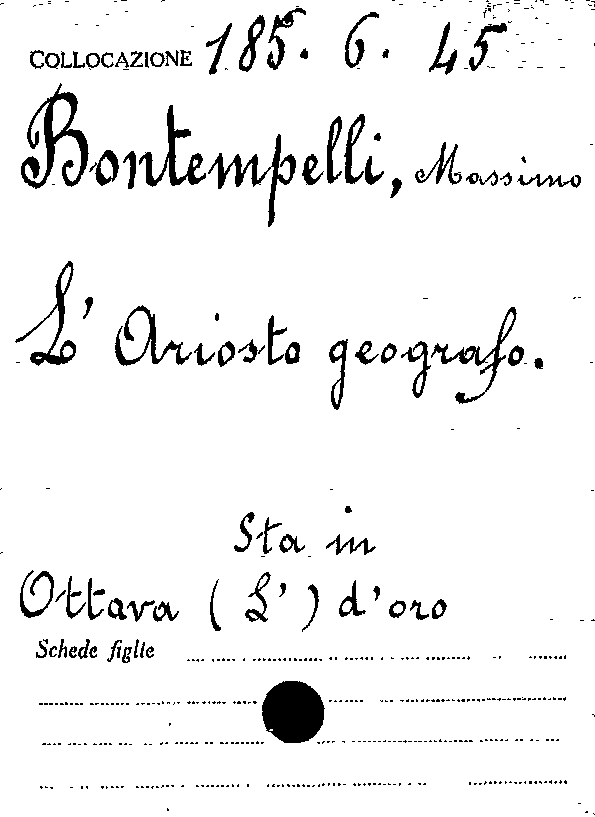 COLLOCAZIONE 185. 6. 45
Bontempelli, Massimo
L' Ariosto geografo.
Sta in
Ottava ( L' ) d'oro
Schede figlie